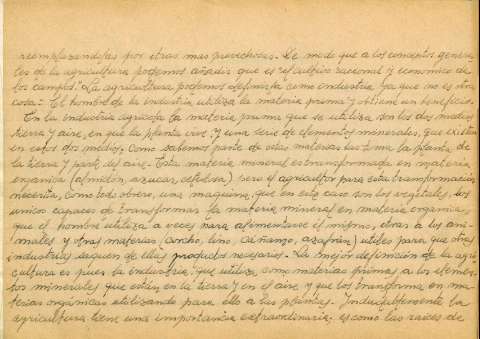 reemplazandolas por otras mas provechosas. De modo que a los conceptos genera-
les de la agricultura podemos añadir que es el cultivo racional y economico de
los campos. La agricultura podemos definirla como industria ya que no es otra
cosa. El hombre de la industria utiliza la materia prima y obtiene un beneficio.
En la industria agricola la materia prima que se utiliza son los dos medios
tierra y aire, en que la planta vive y una serie de elementos minerales, que existen
en estos dos medios. Como sabemos parte de estas materias las toma la planta de
la tierra y parte del aire. Esta materia mineral es transformada en materia
organica (almidón, azucar, celulosa) pero el agricultor para esta transformación
necesita, como todo obrero, una maquina, que en este caso son los vegetales, los
unicos capaces de transformar la materia mineral en materia organica,
que el hombre utiliza a veces para alimentarse el mismo, otras a los ani-
males y otras materias (corcho, lino, cáñamo, azafrán) utiles para que otras
industrias saquen de ellas productos necesarios. La mejor definición de la agri-
cultura es pues la industria que utiliza como materias primas a los elemen-
tos minerales que estan en la tierra y en el aire y que los transforma en ma-
terias orgánicas utilizando para ello a las plantas. Indudablemente la
agricultura tiene una importancia extraordinaria; es como las raices de